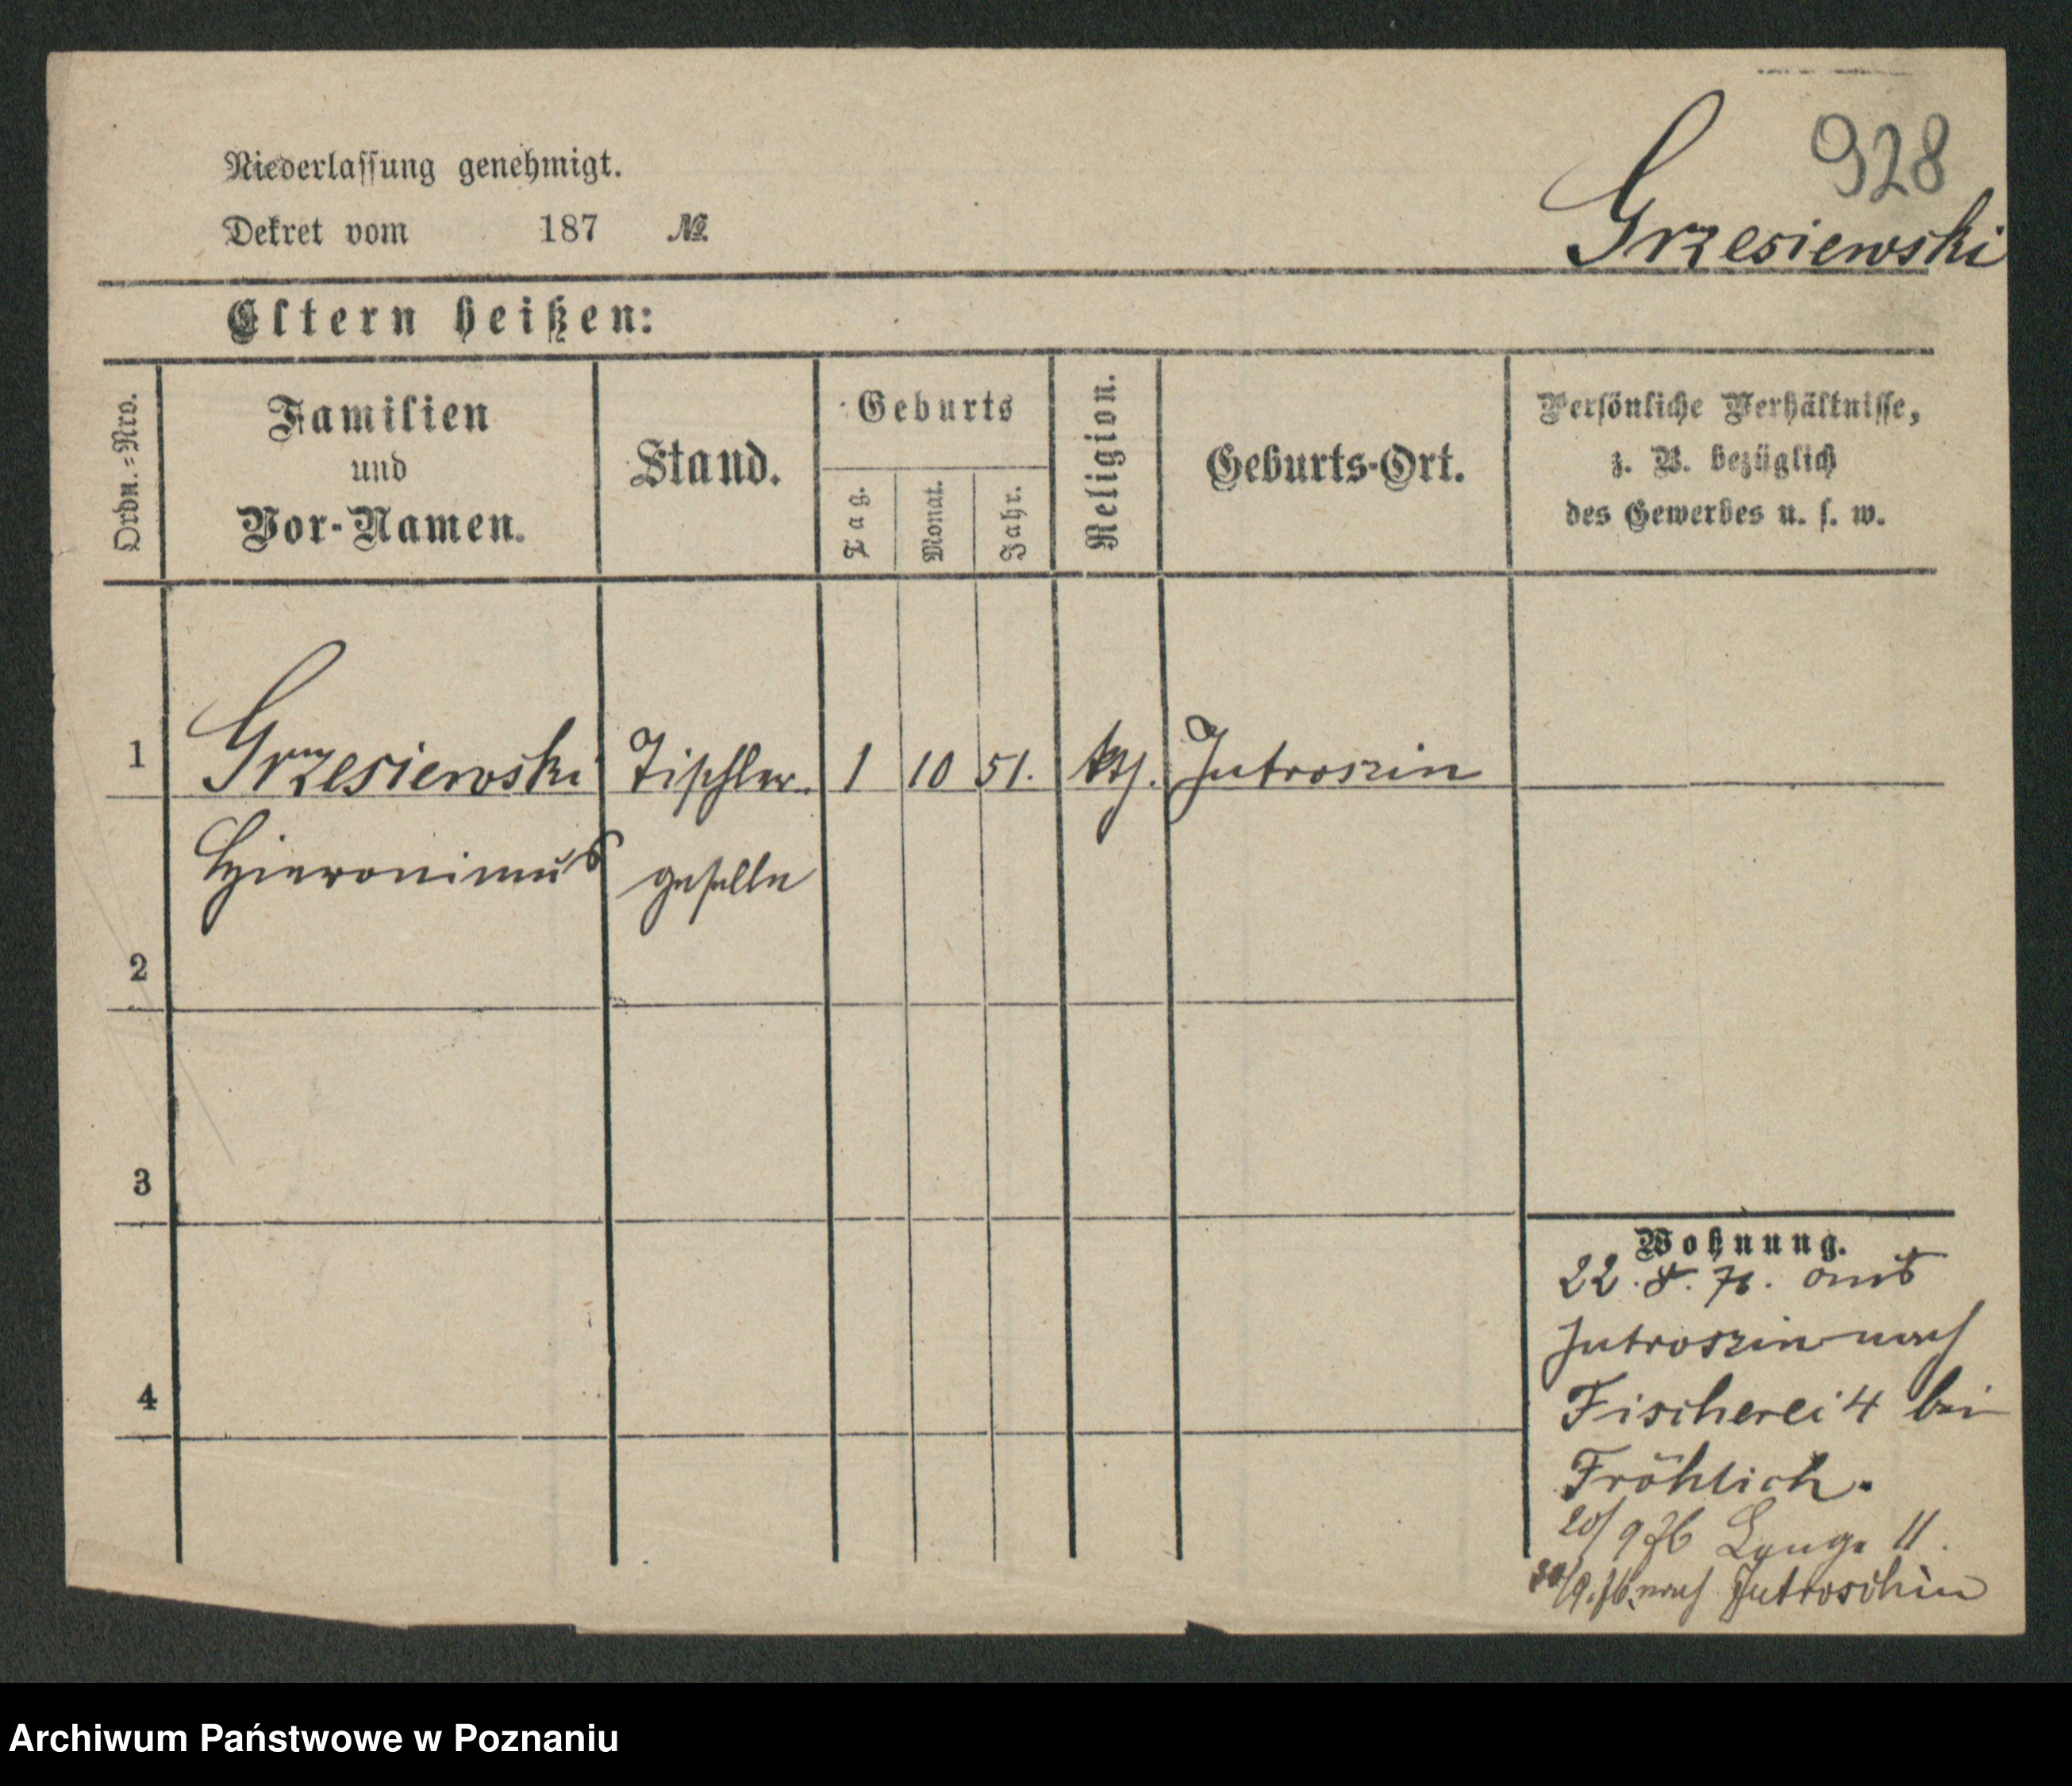 928
Grzesiewski
Niederlassung genehmigt.
Dekret vom 187 №
Eltern heißen:
Ordn.=Nro.
Familien
und
Vor-Namen.
Stand.
Geburts
Tag.
Monat.
Jahr.
Religion.
Geburts-Ort.
Persönliche Verhältnisse,
z. B. bezüglich
des Gewerbes u. s. w.
1 Grzesiewski Tischler- 1 10 51. kth. Jutroszin
Hieronimus geselle
2
3
4
Wohnung.
22. 8. 76. aus
Jutroszin nach
Fischerei 4 bei
Fröhlich.
20/9 76 Lange 11.
/9. 76. nach Jutroschin
Archiwum Państwowe w Poznaniu